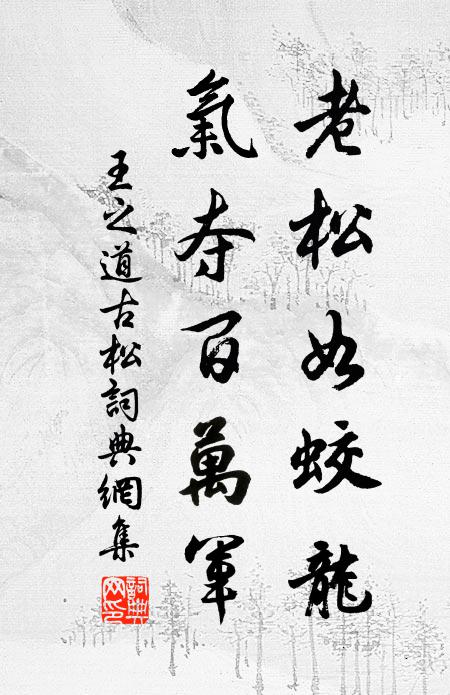 老松如蛟龍
氣夺百萬軍
王之道古松詞典網集
詞典网印